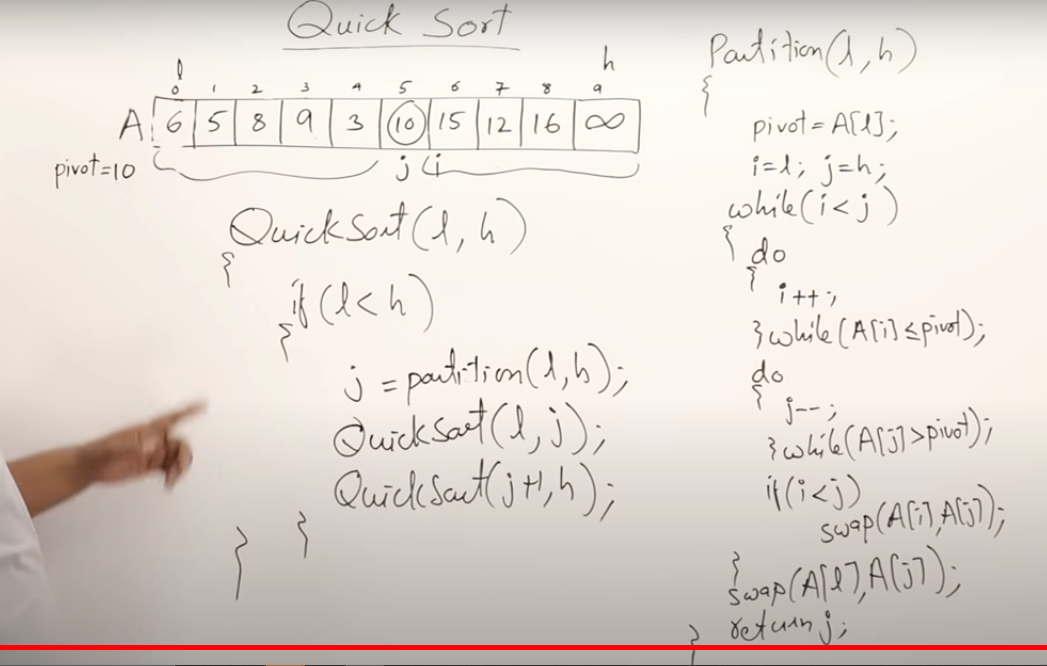 Quick Sort
l h
0 1 2 3 4 5 6 7 8 9
A 6 5 8 9 3 10 15 12 16 ∞
pivot=10 j i
QuickSort(l, h)
{
if(l<h)
{
j = partition(l,h);
QuickSort(l,j);
QuickSort(j+1,h);
}
}
Partition(l,h)
{
pivot=A[l];
i=l; j=h;
while(i<j)
{ do
{
i++;
}while(A[i]≤pivot);
do
{
j--;
}while(A[j]>pivot);
if(i<j)
swap(A[i],A[j]);
}
swap(A[l],A[j]);
return j;
}